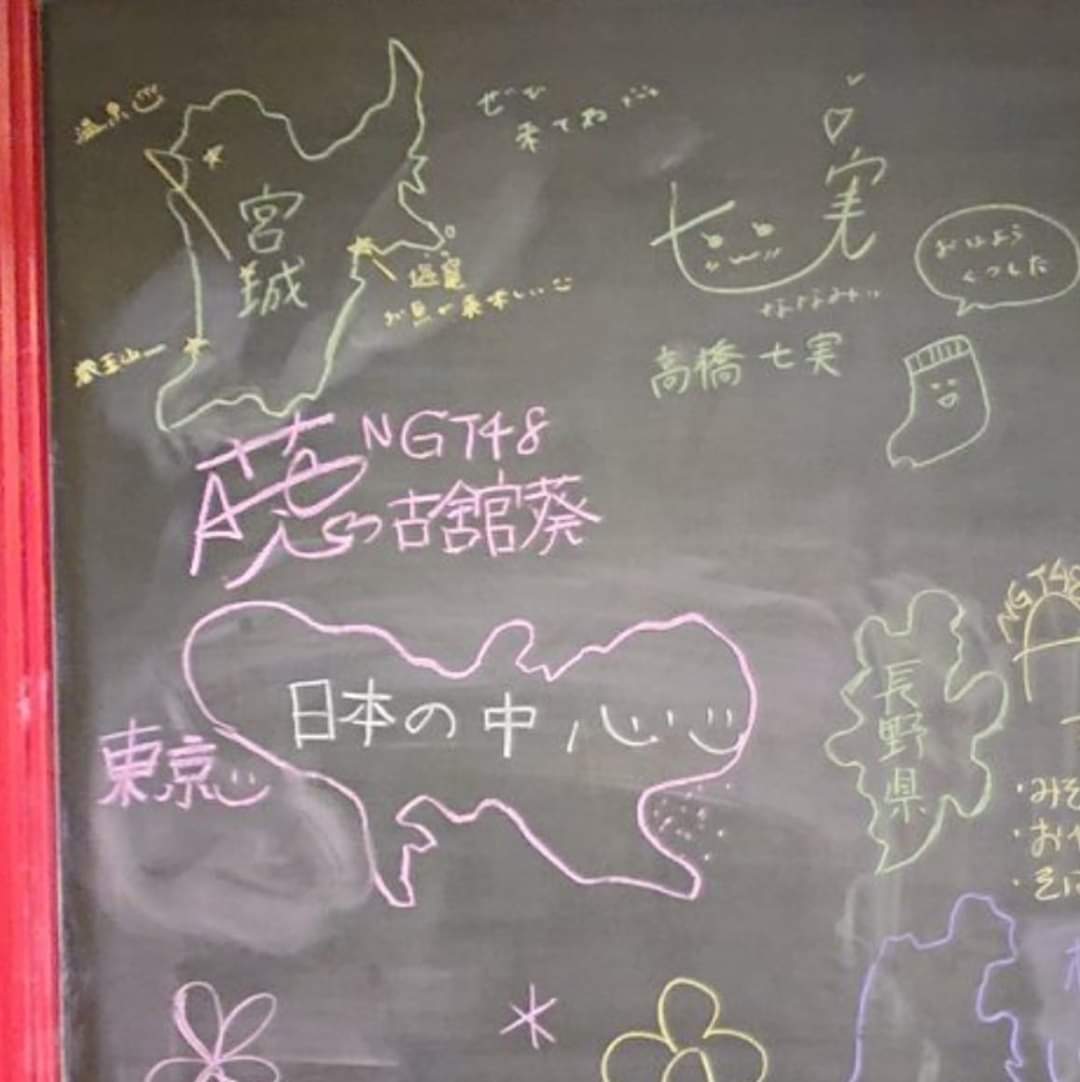 温泉
ぜひ
来てね
宮城
塩竈
お魚が美味しい
蔵王山
七実
ななみん
高橋 七実
おはよう
くつした
NGT48
古舘葵
東京
日本の中心
長野県
NGT48
・みそ
・おや
・そば